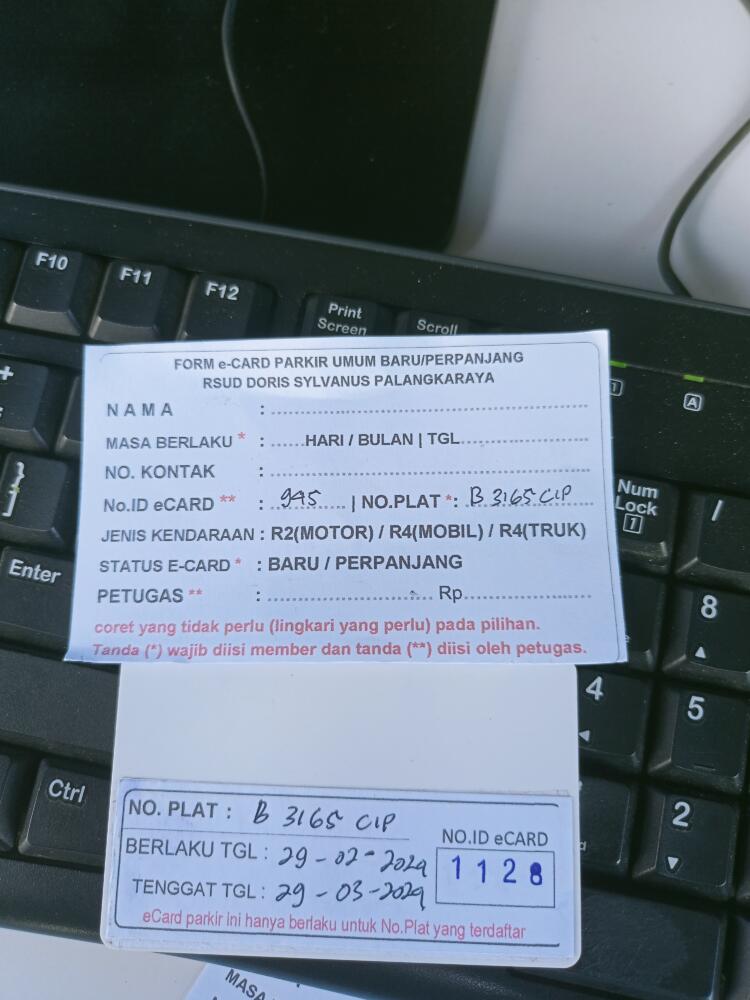 F10
F11
F12
Print
Screen
Scroll
+
1
A
FORM e-CARD PARKIR UMUM BARU/PERPANJANG
RSUD DORIS SYLVANUS PALANGKARAYA
NAMA :
MASA BERLAKU * : ......HARI / BULAN | TGL
NO. KONTAK :
No.ID eCARD ** : 945 | NO.PLAT *: B 3165 CIP
JENIS KENDARAAN : R2(MOTOR) / R4(MOBIL) / R4(TRUK)
STATUS E-CARD * : BARU / PERPANJANG
PETUGAS ** : Rp
coret yang tidak perlu (lingkari yang perlu) pada pilihan.
Tanda (*) wajib diisi member dan tanda (**) diisi oleh petugas.
}
]
Num
Lock
1
/
Enter
8
4
5
Ctrl
2
NO. PLAT : B 3165 CIP
BERLAKU TGL : 29-02-2024
TENGGAT TGL : 29-03-2024
NO.ID eCARD
1128
eCard parkir ini hanya berlaku untuk No.Plat yang terdaftar
MASA